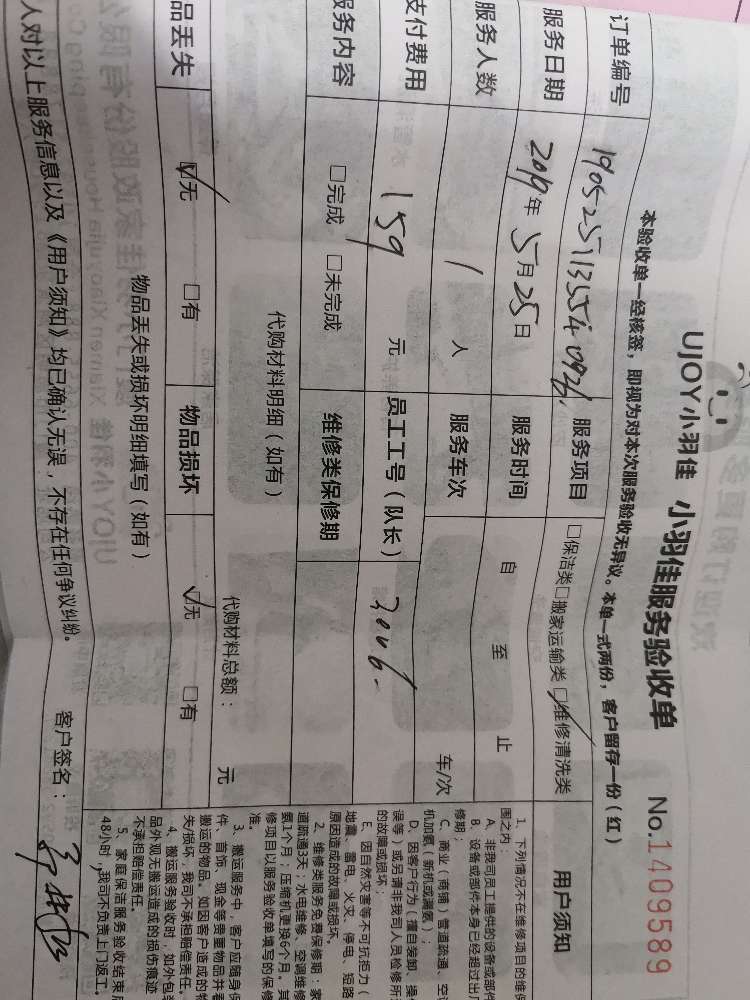 UJOY小羽佳 小羽佳服务验收单 No.1409589
本验收单一经核签，即视为对本次服务验收无异议。本单一式两份，客户留存一份（红）
订单编号 服务项目 □保洁类□搬家运输类☑维修清洗类
服务日期 2019年5月25日 服务时间 自 至 止
服务人数 1 人 服务车次 车/次
支付费用 159 元 员工工号（队长） 3046
服务内容 □完成 □未完成 维修类保修期
代购材料明细（如有） 代购材料总额： 元
品丢失 ☑无 □有 物品损坏 ☑无 □有
物品丢失或损坏明细填写（如有）
人对以上服务信息以及《用户须知》均已确认无误，不存在任何争议纠纷。
客户签名：
用户须知
1、下列情况不在维修项目的维保
围之内：
A、非我司员工提供的设备或部件
B、设备或部件本身已经超过出厂
修期；
C、商业（商铺）管道疏通、空调
机加氨（新机或漏氨）；
D、因客户行为（擅自装卸、操
误等）或另请非我司人员检修所
的故障或损坏；
E、因自然灾害等不可抗拒力（
地震、雷电、火灾、停电、短路
原因造成的故障或损坏。
2、维修类服务免费保修期：家
道疏通3天；水电维修、空调维修
氨1个月；压缩机更换6个月。其
修项目以服务验收单填写的保修
准。
3、搬运服务中，客户应随身保
件、首饰、现金等贵重物品并看
搬运的物品。如因客户造成的物
失/损坏，我司不承担赔偿责任。
4、搬运服务验收时，如外包装
品外观无搬运造成的损伤痕迹
不承担赔偿责任。
5、家庭保洁服务验收结束后
48小时，我司不负责上门返工。